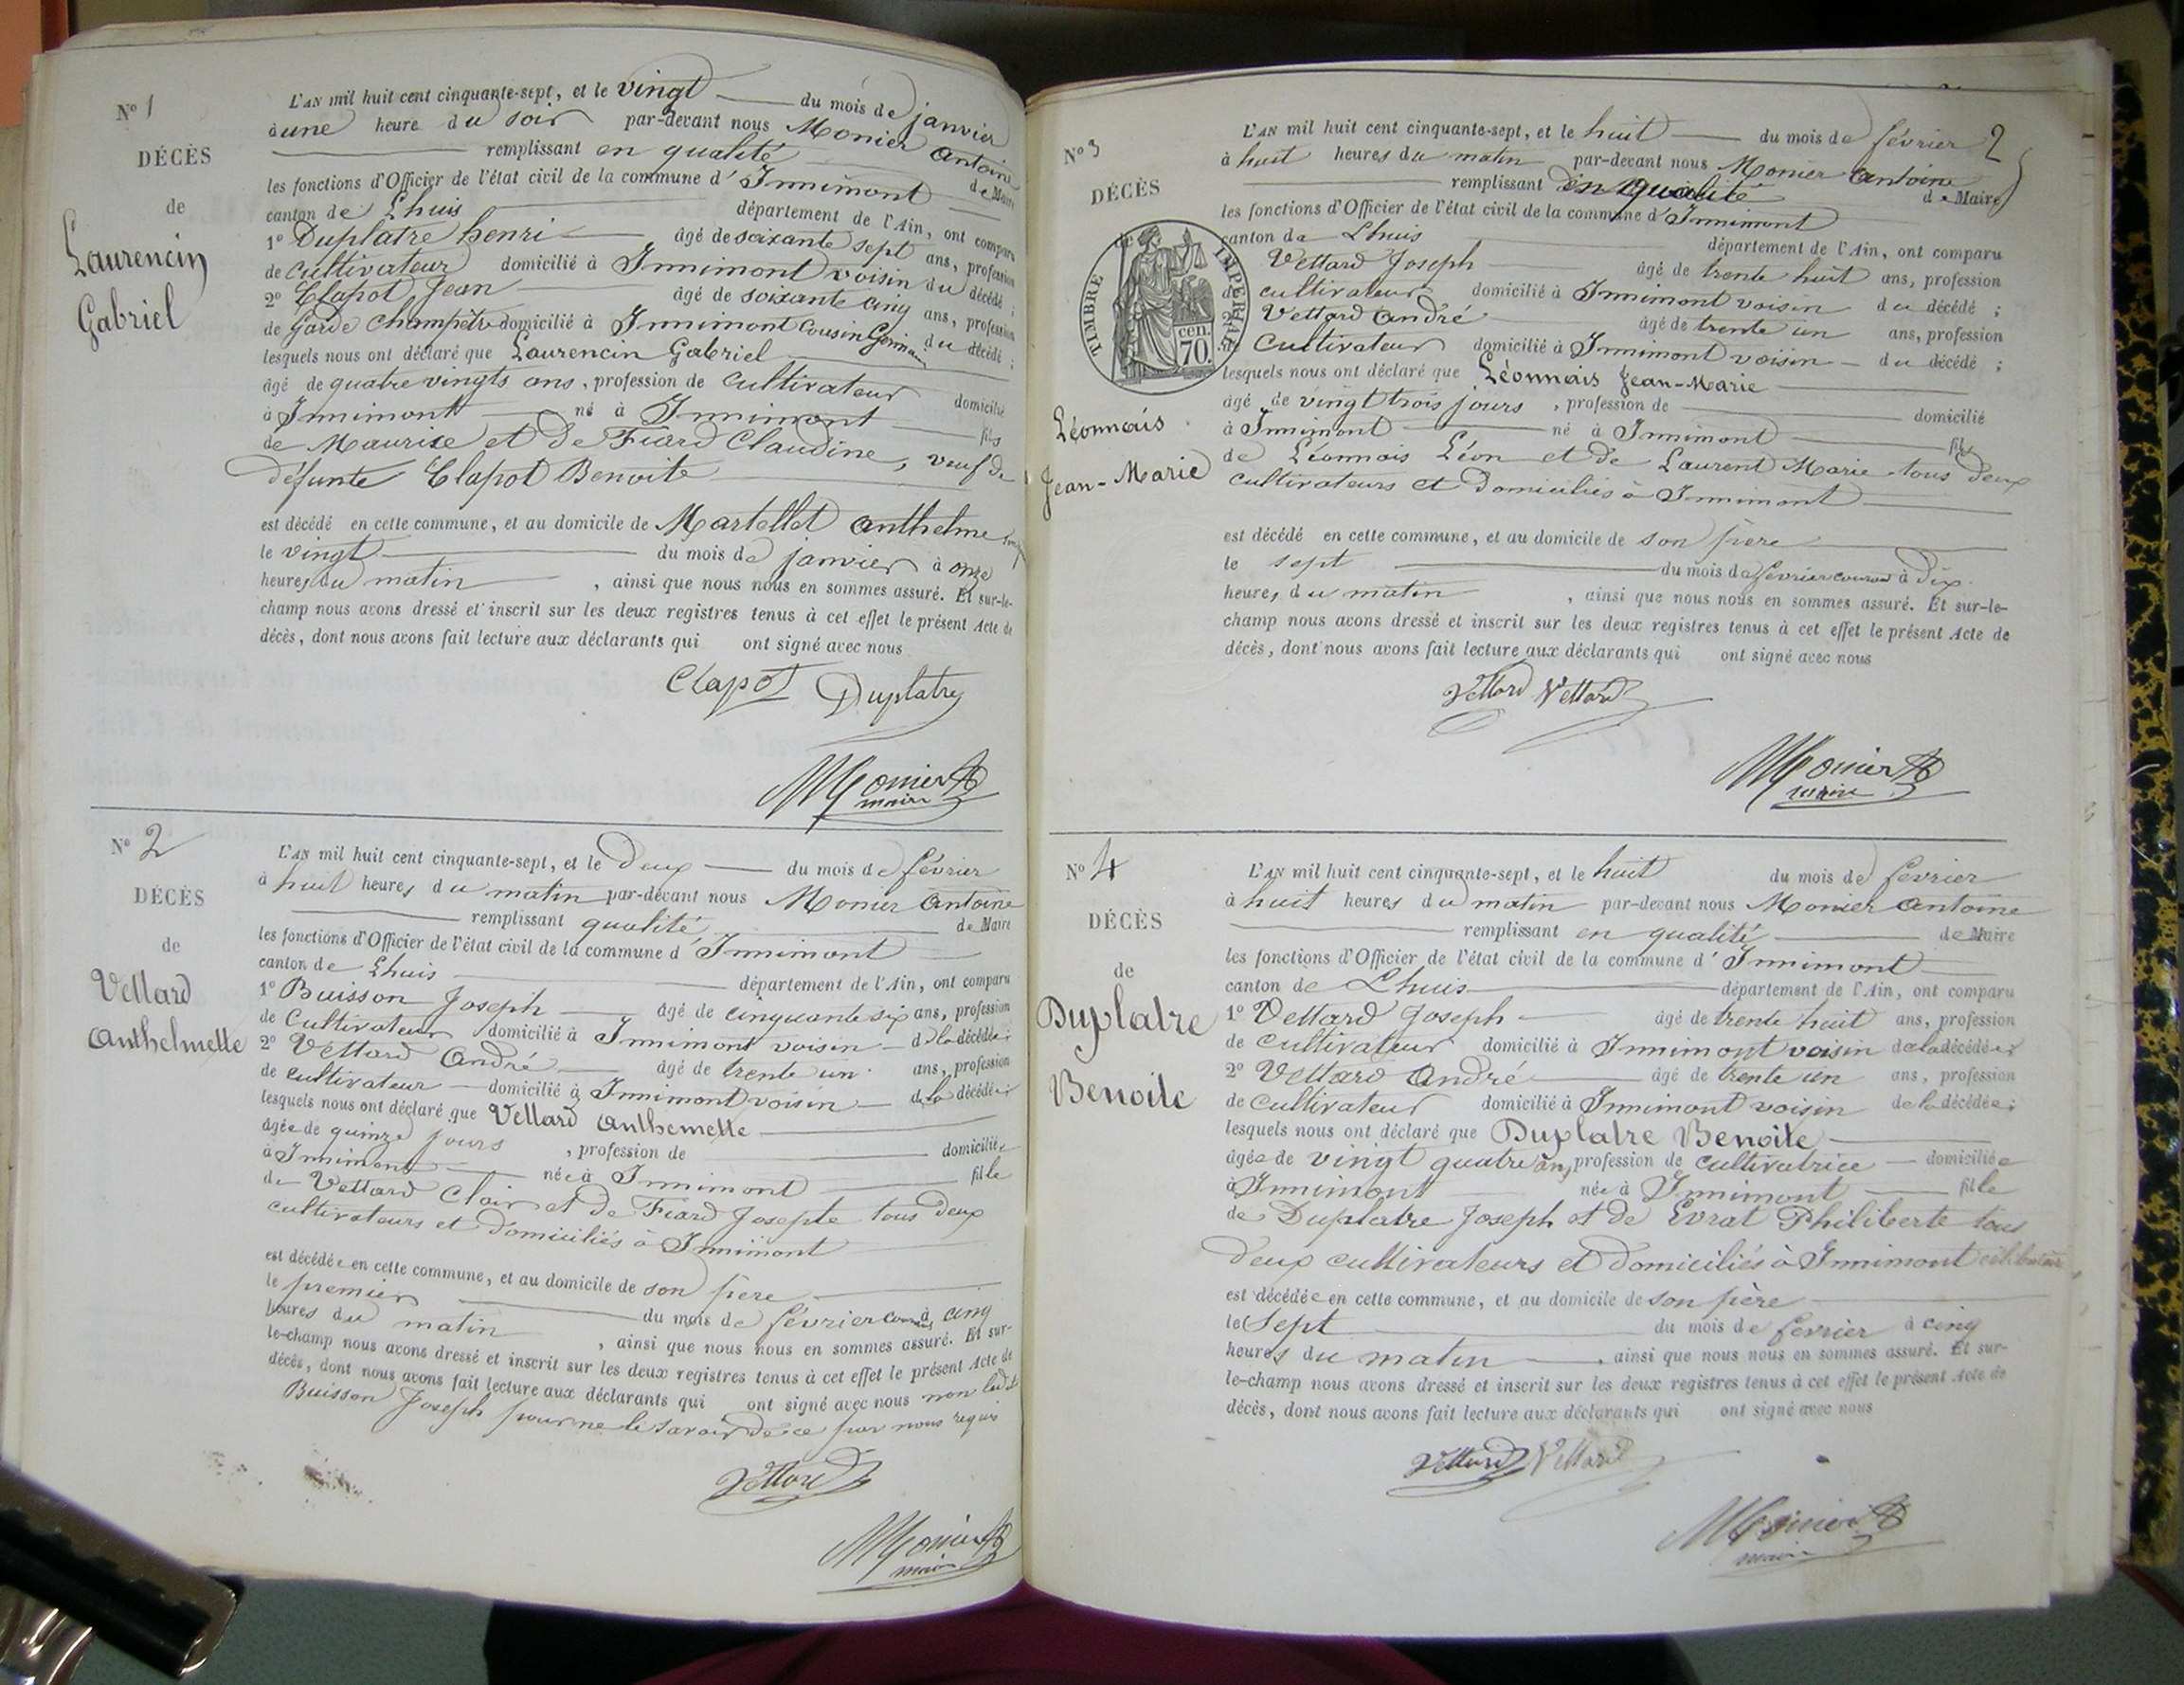 N° 1
DÉCÈS
de
Laurencin
Gabriel
L'AN mil huit cent cinquante-sept, et le vingt du mois de janvier
à une heure du soir par-devant nous Monier Antoine
remplissant en qualité de Maire
les fonctions d'Officier de l'état civil de la commune d'Innimont
canton de Lhuis département de l'Ain, ont comparu
1° Duplatre henri âgé de soixante sept ans, profession
de cultivateur domicilié à Innimont voisin du décédé ;
2° Clapot Jean âgé de soixante cinq ans, profession
de Garde Champêtre domicilié à Innimont Cousin Germain du décédé ;
lesquels nous ont déclaré que Laurencin Gabriel
âgé de quatre vingts ans, profession de Cultivateur domicilié
à Innimont né à Innimont fils
de Maurise et de Fiard Claudine, veuf de
défunte Clapot Benoite
est décédé en cette commune, et au domicile de Martellet Anthelme
le vingt du mois de janvier à onze
heures du matin, ainsi que nous nous en sommes assuré. Et sur-le-
champ nous avons dressé et inscrit sur les deux registres tenus à cet effet le présent Acte de
décès, dont nous avons fait lecture aux déclarants qui ont signé avec nous
Clapot Duplatre
Monier A
maire
N° 2
DÉCÈS
de
Vettard
Anthelmette
L'AN mil huit cent cinquante-sept, et le deux du mois de février
à huit heures du matin par-devant nous Monier Antoine
remplissant qualité de Maire
les fonctions d'Officier de l'état civil de la commune d'Innimont
canton de Lhuis département de l'Ain, ont comparu
1° Buisson Joseph âgé de cinquante six ans, profession
de Cultivateur domicilié à Innimont voisin de la décédée ;
2° Vettard André âgé de trente un ans, profession
de cultivateur domicilié à Innimont voisin de la décédée ;
lesquels nous ont déclaré que Vettard Anthemette
âgée de quinze jours, profession de domiciliée
à Innimont née à Innimont fille
de Vettard Clair et de Fiard Josephte tous deux
cultivateurs et domiciliés à Innimont
est décédée en cette commune, et au domicile de son père
le premier du mois de février courant à cinq
heures du matin, ainsi que nous nous en sommes assuré. Et sur-
le-champ nous avons dressé et inscrit sur les deux registres tenus à cet effet le présent Acte de
décès, dont nous avons fait lecture aux déclarants qui ont signé avec nous non ledit
Buisson Joseph pour ne le savoir de ce par nous requis
Vettard
Monier A
maire
2
N° 3
DÉCÈS
de
TIMBRE IMPÉRIAL
70 cen.
Léonnais
Jean-Marie
L'AN mil huit cent cinquante-sept, et le huit du mois de février
à huit heures du matin par-devant nous Monier Antoine
remplissant en qualité de Maire
les fonctions d'Officier de l'état civil de la commune d'Innimont
canton de Lhuis département de l'Ain, ont comparu
Vettard Joseph âgé de trente huit ans, profession
de cultivateur domicilié à Innimont voisin du décédé ;
2° Vettard André âgé de trente un ans, profession
de Cultivateur domicilié à Innimont voisin du décédé ;
lesquels nous ont déclaré que Léonnais Jean-Marie
âgé de vingt trois jours, profession de domicilié
à Innimont né à Innimont fils
de Léonnais Léon et de Laurent Marie tous deux
cultivateurs et domiciliés à Innimont
est décédé en cette commune, et au domicile de son père
le sept du mois de février courant à dix
heures du matin, ainsi que nous nous en sommes assuré. Et sur-le-
champ nous avons dressé et inscrit sur les deux registres tenus à cet effet le présent Acte de
décès, dont nous avons fait lecture aux déclarants qui ont signé avec nous
Vettard Vettard
Monier A
maire
N° 4
DÉCÈS
de
Duplatre
Benoite
L'AN mil huit cent cinquante-sept, et le huit du mois de février
à huit heures du matin par-devant nous Monier Antoine
remplissant en qualité de Maire
les fonctions d'Officier de l'état civil de la commune d'Innimont
canton de Lhuis département de l'Ain, ont comparu
1° Vettard Joseph âgé de trente huit ans, profession
de cultivateur domicilié à Innimont voisin de la décédée ;
2° Vettard André âgé de trente un ans, profession
de cultivateur domicilié à Innimont voisin de la décédée ;
lesquels nous ont déclaré que Duplatre Benoite
âgée de vingt quatre ans, profession de cultivatrice domiciliée
à Innimont née à Innimont fille
de Duplatre Joseph et de Evrat Philiberte tous
deux cultivateurs et domiciliés à Innimont célibataire
est décédée en cette commune, et au domicile de son père
le Sept du mois de février à cinq
heures du matin, ainsi que nous nous en sommes assuré. Et sur-
le-champ nous avons dressé et inscrit sur les deux registres tenus à cet effet le présent Acte de
décès, dont nous avons fait lecture aux déclarants qui ont signé avec nous
Vettard Vettard
Monier A
maire